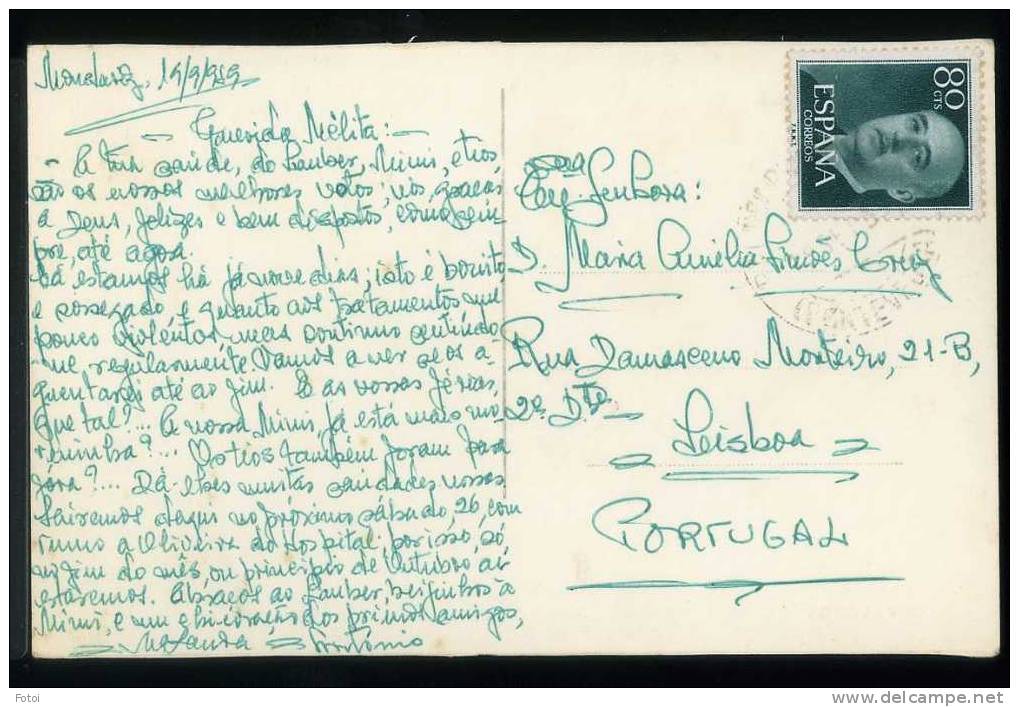 Mondariz, 19/9/959
- Querida Mélita: -
- A tua saúde, do Xauber, Mimi, e tios
são os nossos melhores votos; nós, graças
a Deus, felizes e bem dispostos, como sem
pre, até agora.
Cá estamos há já nove dias; isto é bonito
e sossegado, e quanto aos tratamentos um
pouco violentos, mas continuo sentindo
-me regularmente. Vamos a ver se os a
guentarei até ao fim. E as vossas férias,
que tal?... A nossa Mimi, já está mais mo
reninha?... Os tios também foram para
fora?... Dá-lhes muitas saudades nossas
Sairemos daqui no próximo sábado, 26, com
rumo a Oliveira do Hospital, por isso, só,
em fim do mês, ou princípio de Outubro aí
estaremos. Abraços ao Xauber, beijinhos à
Mimi, e um chi-coração dos primos amigos,
António
Senhora:
D. Maria Amélia Simões Cruz
Rua Damasceno Monteiro, 21-B,
2º. Dto. -
Lisboa
PORTUGAL
80 CTS
ESPAÑA
CORREOS
Fotoi
http://www.delcampe.net